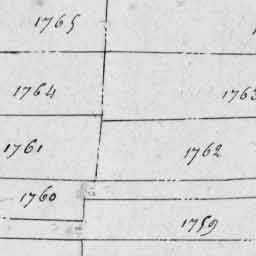 1765
1764 1763
1761 1762
1760
1759